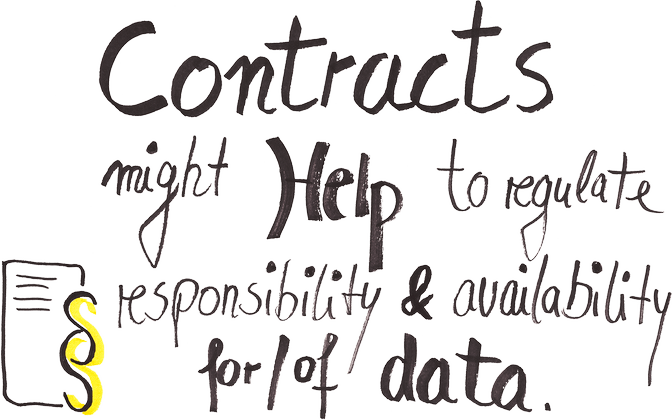 Contracts
might Help to regulate
responsibility & availability
§
for/of data.